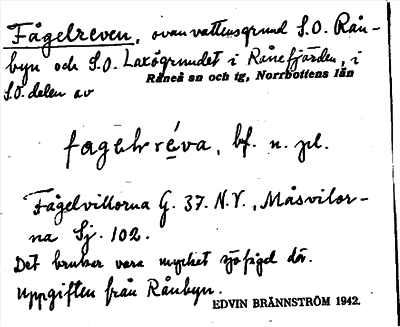 Fågelreven, ovanvattensgrund S.O. Rån-
byn och S.O. Laxögrundet i Rånefjärden, i
Råneå sn och tg, Norrbottens län
S.O. delen av
fagelrréva, bf. n. pl.
Fågelvillorna G. 37. N.V., Måsvilor-
na Sj. 102.
Det brukar vara mycket sjöfågel där.
Uppgiften från Rånbyn.
EDVIN BRÄNNSTRÖM 1942.